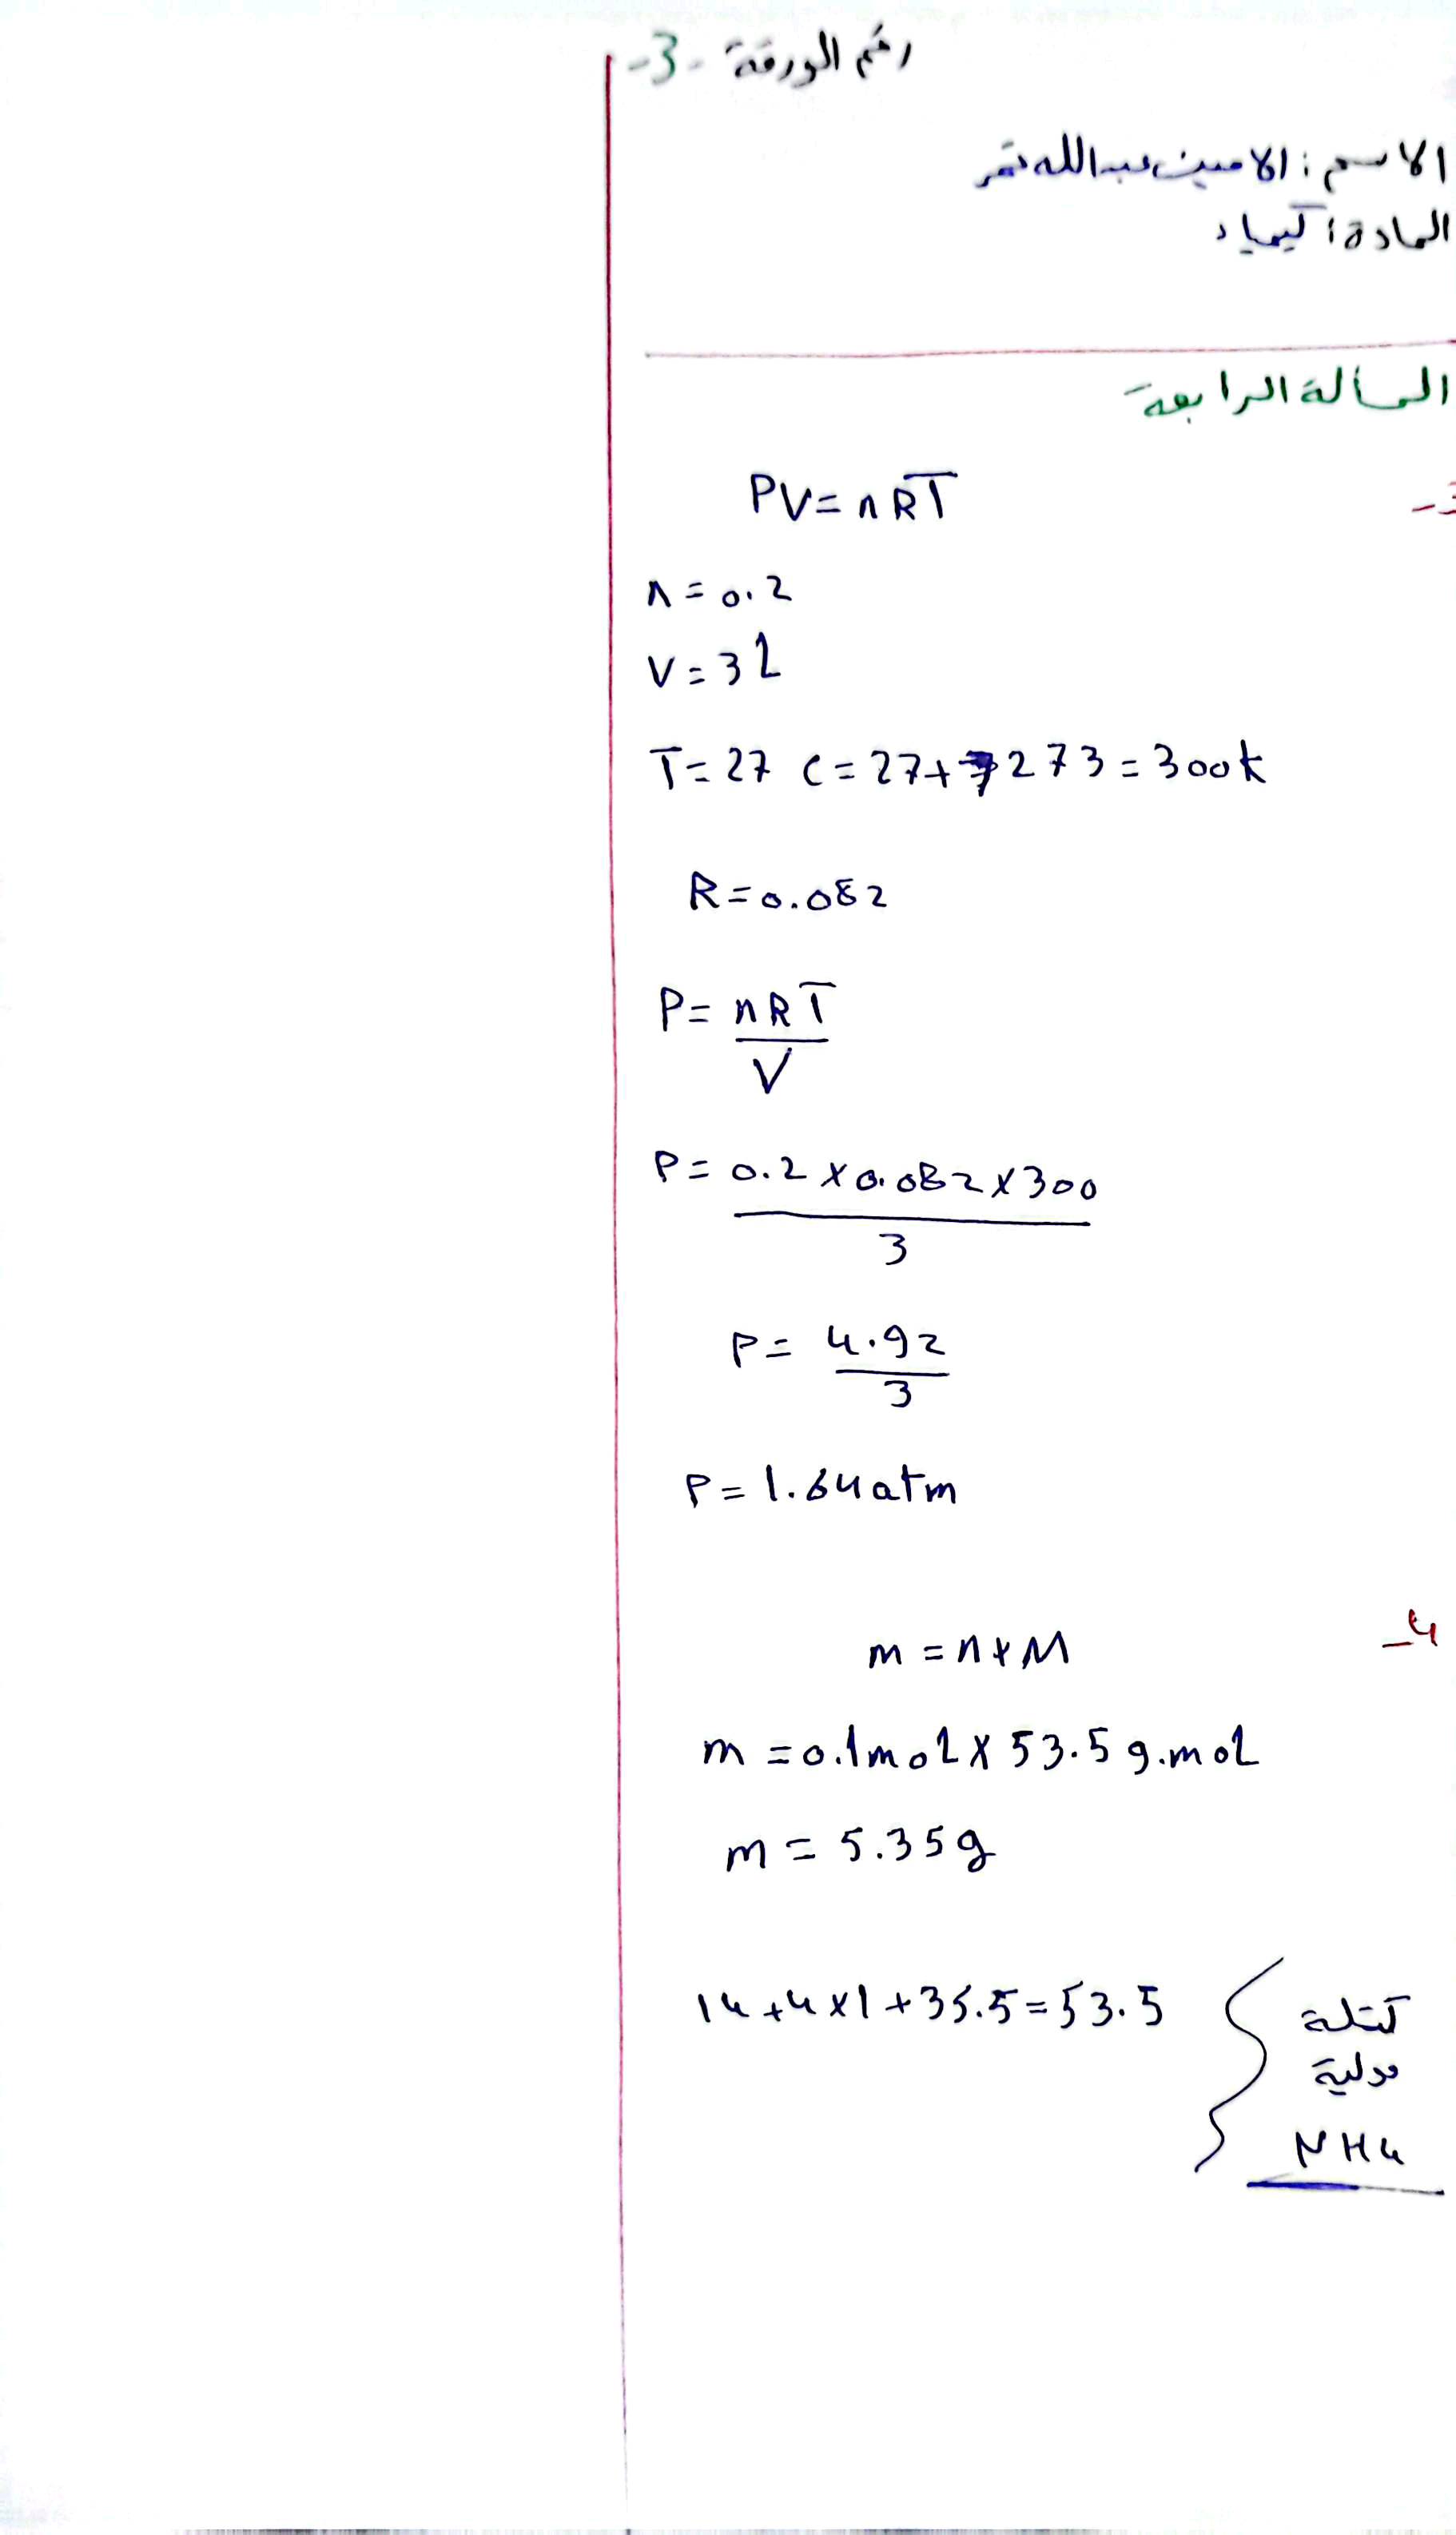 رقم الورقة -3-
الاسم: الامين عبدالله تمر
المادة: كيمياء
المسألة الرابعة
PV = nRT
n = 0.2
V = 3L
T = 27 C = 27 + 273 = 300k
R = 0.082
P = nRT
V
P = 0.2 x 0.082 x 300
3
P = 4.92
3
P = 1.64 atm
4-
m = n x M
m = 0.1 mol x 53.5 g.mol
m = 5.35 g
14 + 4 x 1 + 35.5 = 53.5
كتلة
مولية
NH4